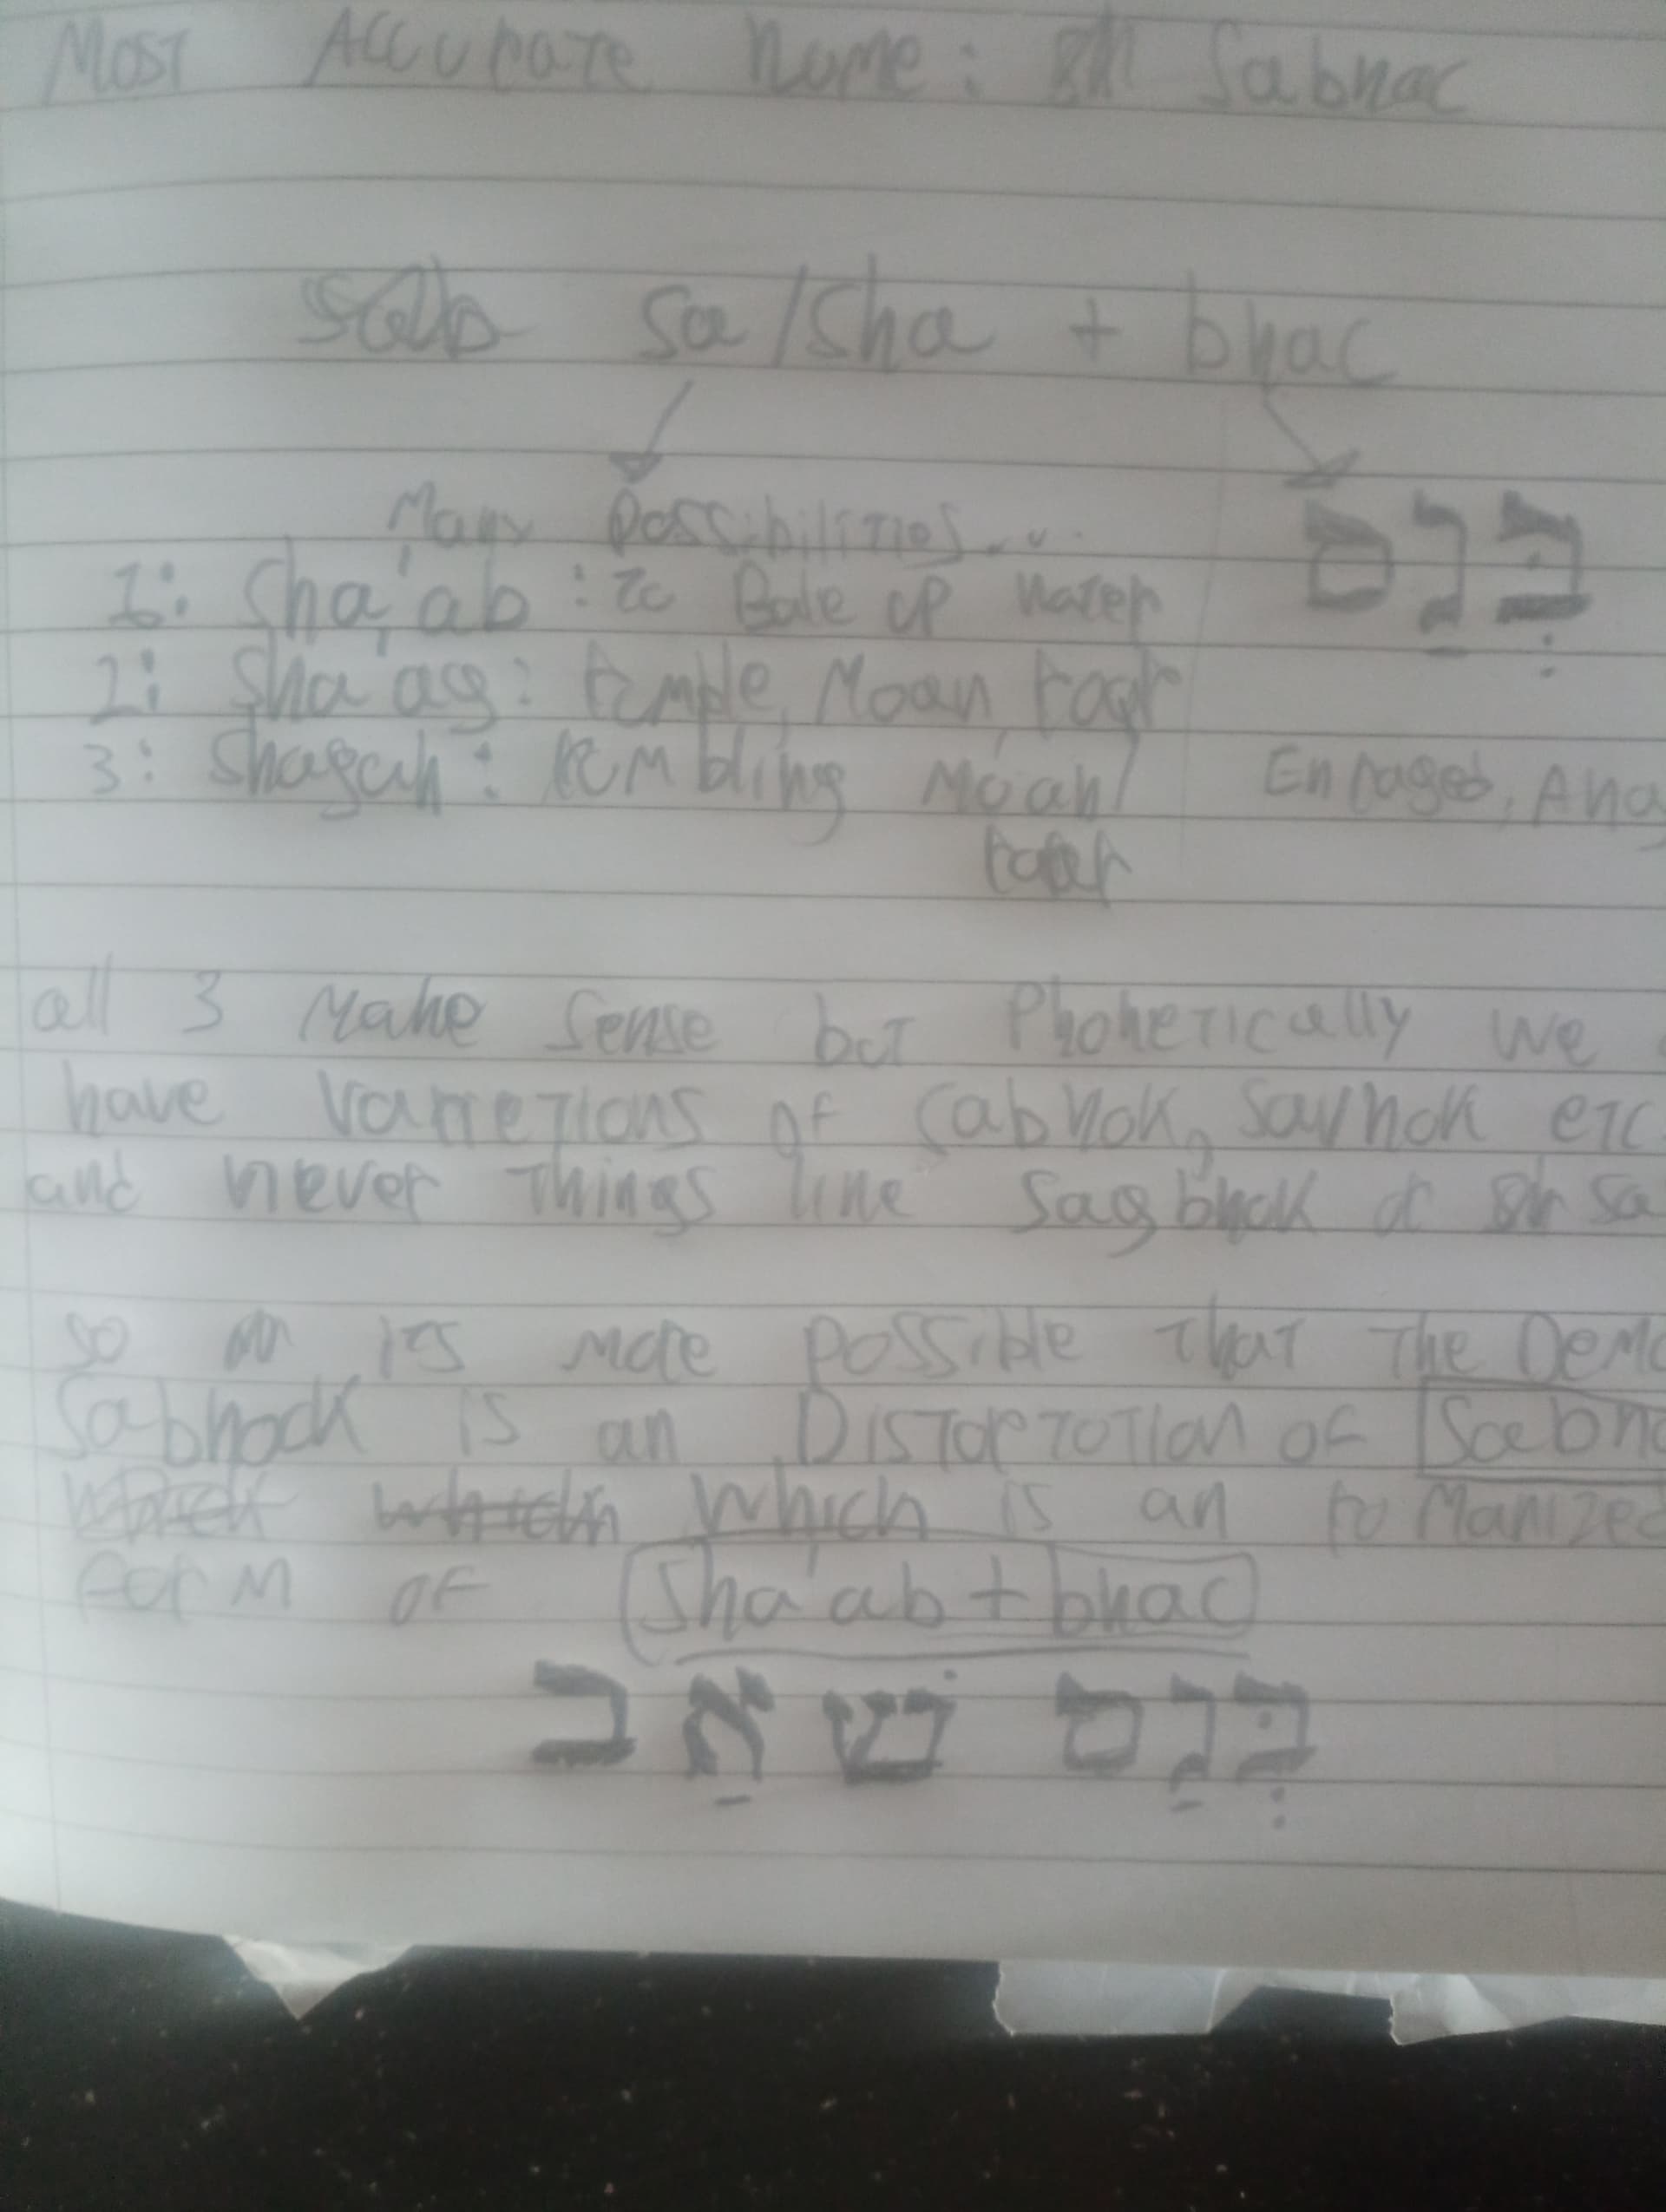 Most Accurate name: Sabnac
Sa/Sha + bnac
Many Possibilities...
בְּנַס
1: Sha'ab: to Bale up water
2: Sha'ag: rumble, Moan roar
3: Shagah: rumbling Moan/
roar
Enraged, Ang
all 3 Make sense but Phonetically we
have varietions of Sabnok, Savnok etc
and never things like Sagbnak or Sa
so its more possible that the Demo
Sabnock is an Distortotion of Sabna
which which is an romanized
form of Sha'ab + bnac
שׁאַב בְּנַס